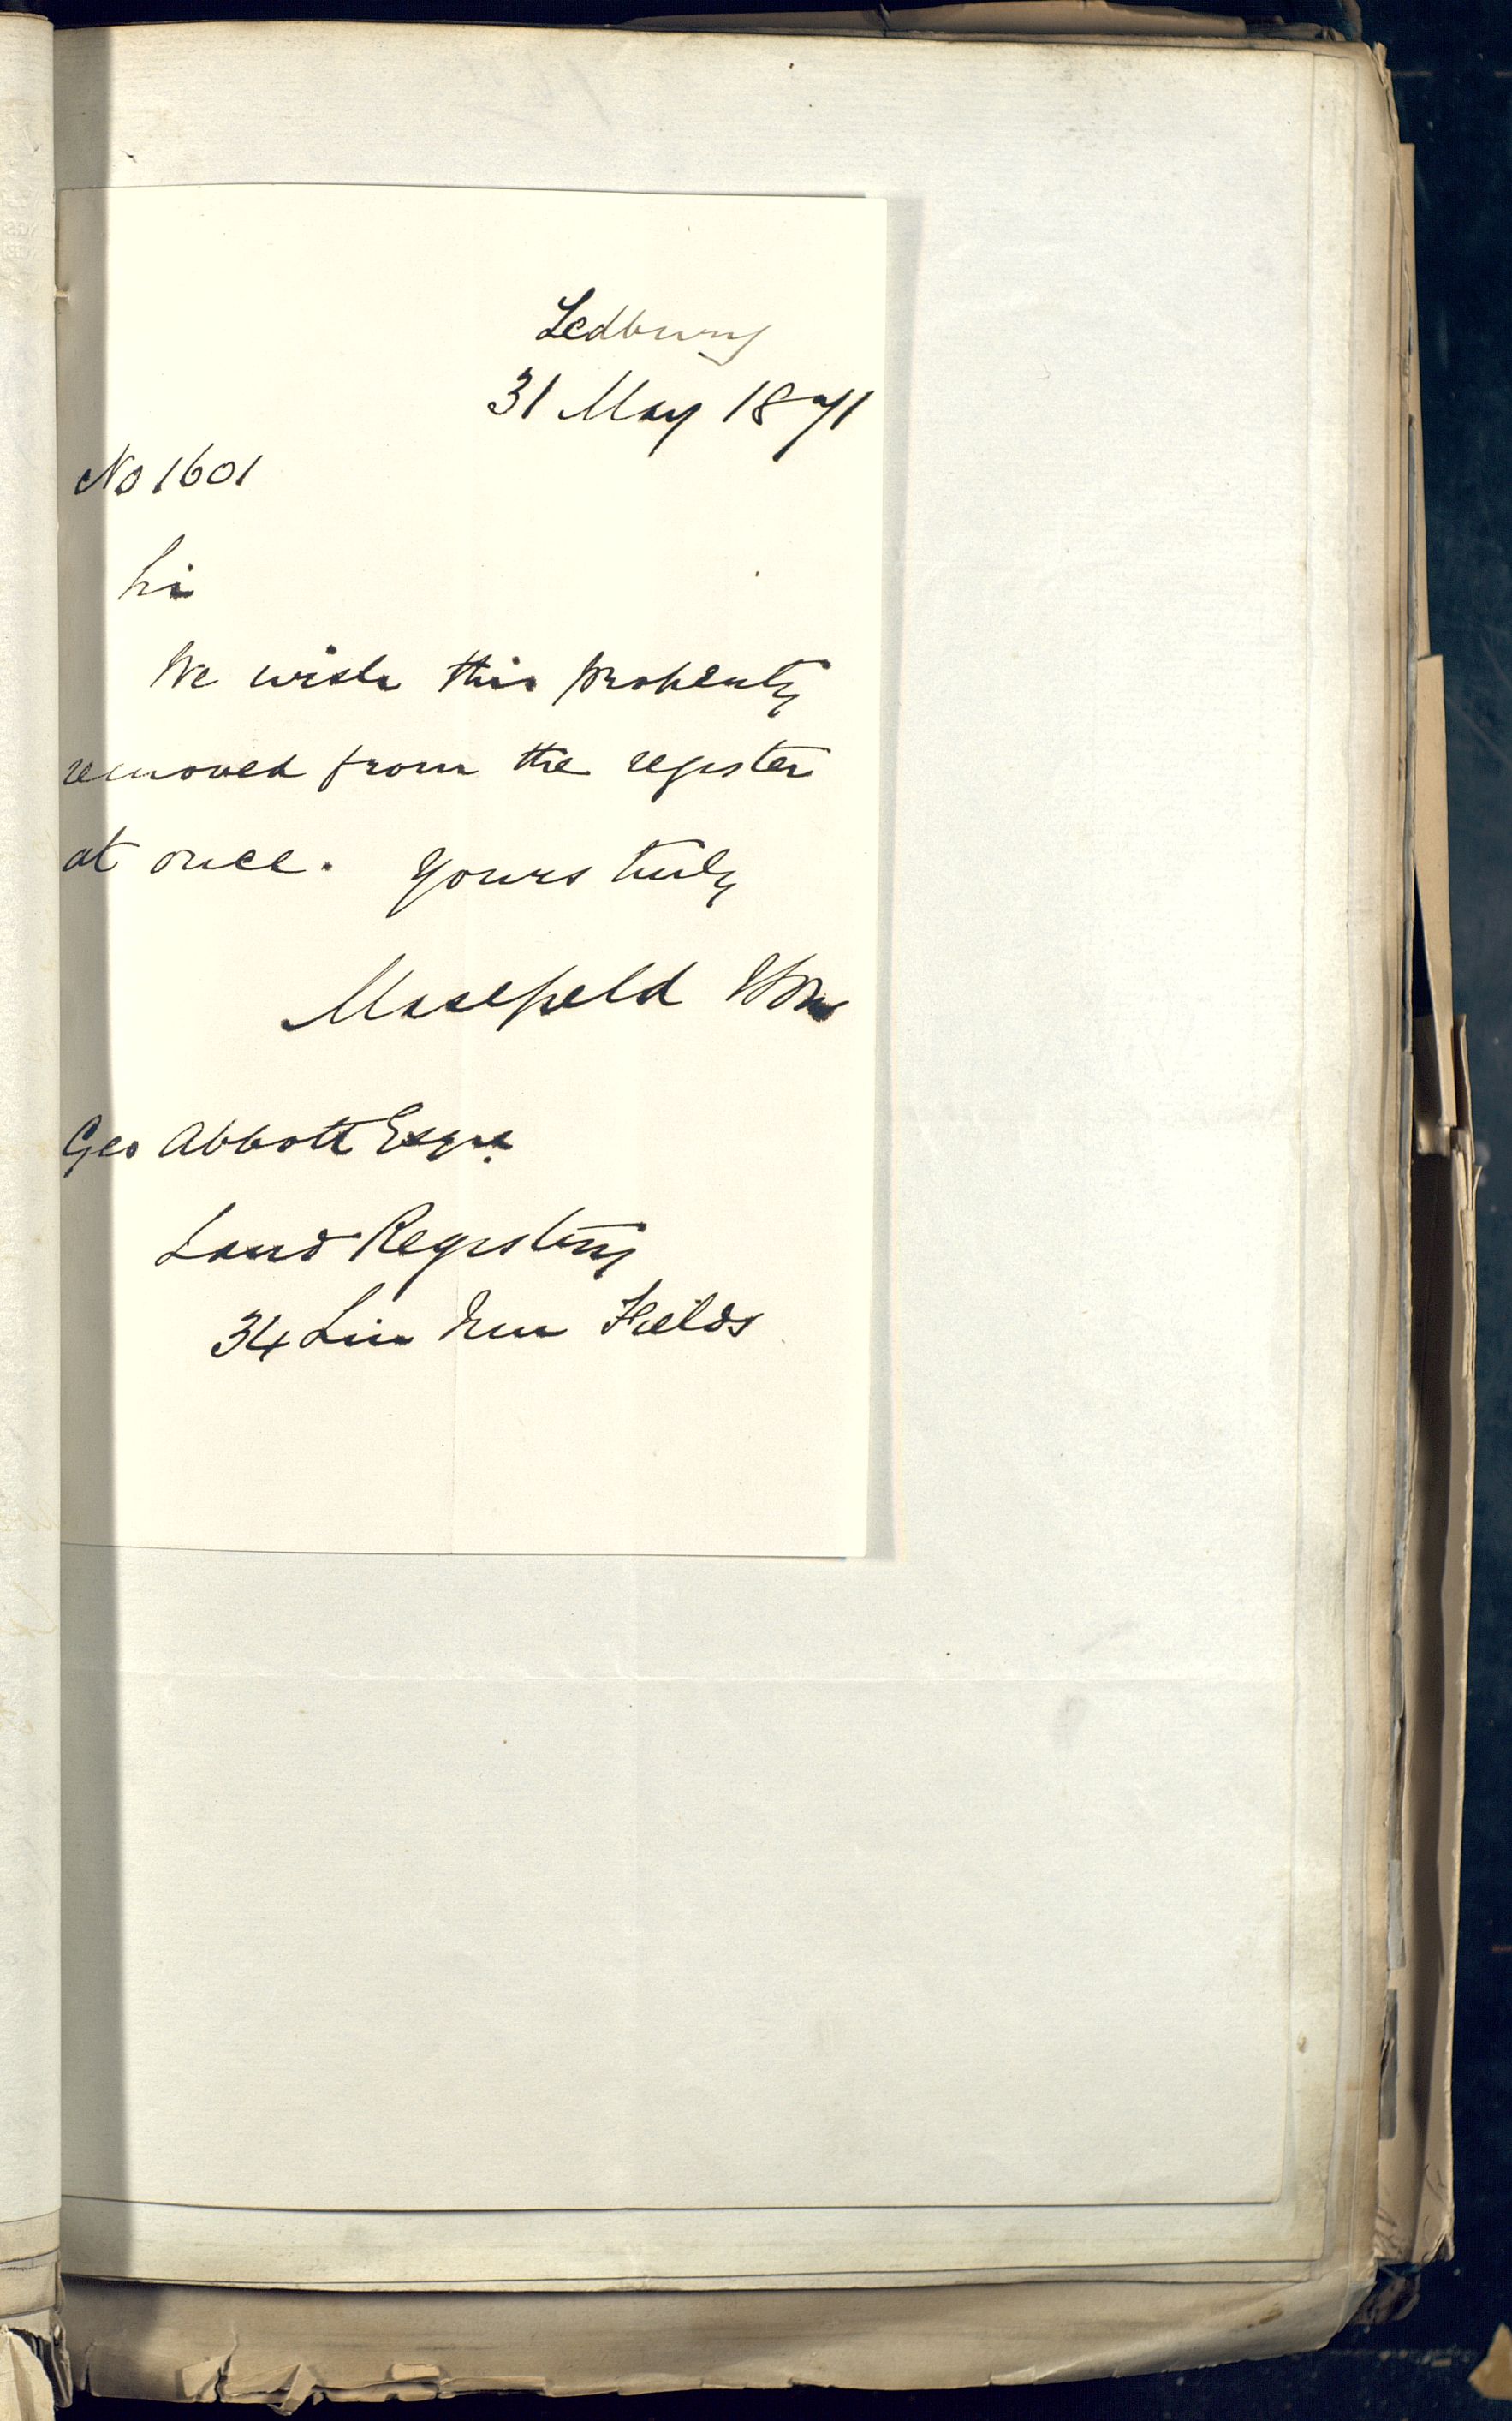 Ledbury
31 May 1871
No 1601
Sir
We wish this property
removed from the register
at once. Yours truly
Masefield & Son
Geo Abbott Esqre.
Land Registry
34 Lin Inn Fields